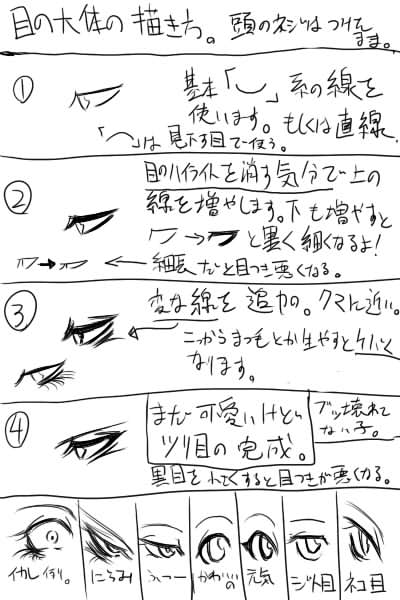 目の大体の描き方。頭のネジはつけてます。
①
基本「‿」系の線を
使います。もしくは直線
「⌒」は見下す目で使う。
②
目のハイライトを消す気分で上の
線を増やします。下も増やすと
→ と黒く細くなるよ!
→ ← 細長だと目つき悪くなる。
③
変な線を追加。クマに近い。
こっからまつ毛とか生やすとケバく
なります。
④
まだ可愛いけど
ツリ目の完成。
ブッ壊れて
ない子。
黒目を小さくすると目つきが悪くなる。
イカレ
にらみ
ふつー
かわいいの
元気
ジト目
ネコ目